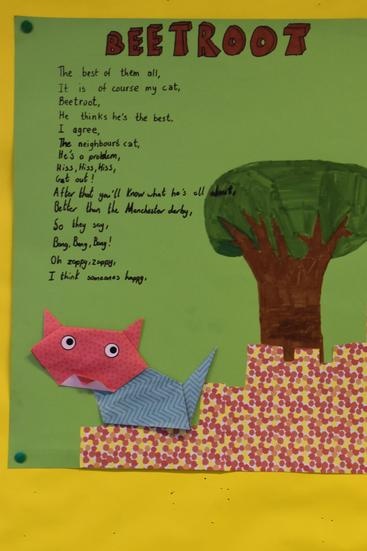 BEETROOT
The best of them all,
It is of course my cat,
Beetroot,
He thinks he's the best.
I agree,
The neighbours cat,
He's a problem,
Hiss, Hiss, Hiss,
Get out!
After that you'll know what he's all about,
Better than the Manchester derby,
So they say,
Bang, Bang, Bang!
Oh zappy, zappy,
I think someones happy.